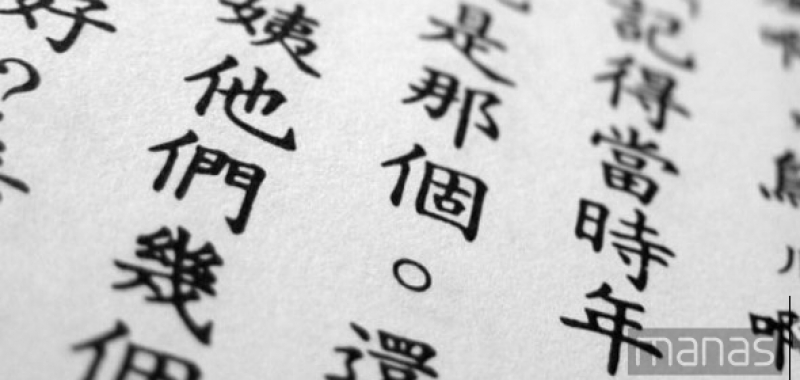 記得當時年
是那個。還
姨他們幾個
好?
manas